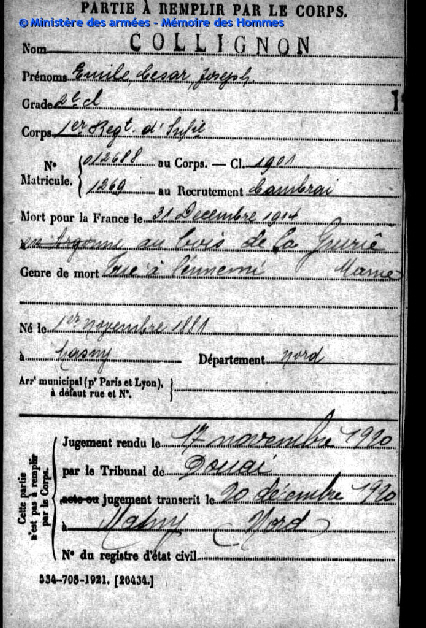 PARTIE À REMPLIR PAR LE CORPS.
© Ministère des armées - Mémoire des Hommes
Nom COLLIGNON
Prénoms Emile Cesar Joseph
Grade 2e cl
Corps 1er Regt d'Infie
N° Matricule. 012688 au Corps. — Cl. 1901
1269 au Recrutement Cambrai
Mort pour la France le 21 Decembre 1914
au bois de La Grurie
Genre de mort Tué à l'ennemi Marne
Né le 1er novembre 1881
à Masny Département Nord
Arr<sup>t</sup> municipal (p<sup>r</sup> Paris et Lyon), à défaut rue et N°.
Cette partie n'est pas à remplir par le Corps.
Jugement rendu le 17 novembre 1920
par le Tribunal de Douai
acte ou jugement transcrit le 20 décembre 1920
à Masny Nord
N° du registre d'état civil
534-708-1921. [26434.]